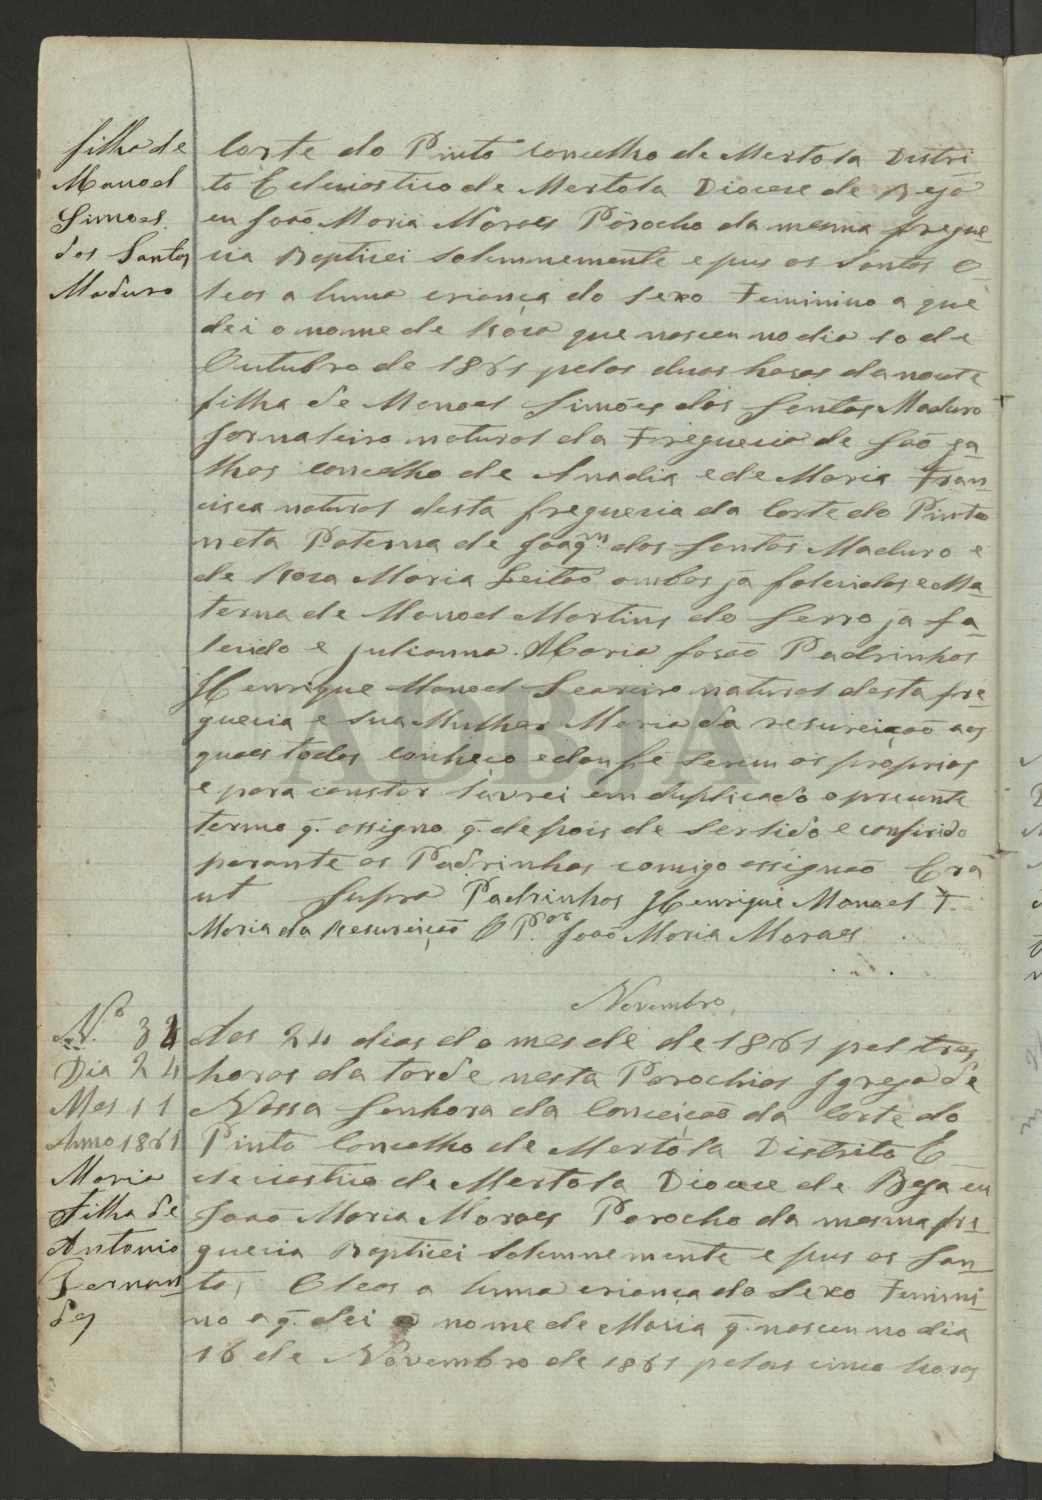 filha de
Manoel
Simoes
dos Santos
Maduro
Corte do Pinto Concelho de Mertola Distri
to Eclesiastico de Mertola Diocese de Beja
eu João Maria Moraes Parocho da mesma fregue
cia Bapticei Solemnemente e pus os Santos O
leos a huma criança do sexo Feminino a que
dei o nome de Roza que nasceu no dia 10 de
Outubro de 1861 pelas duas horas da noute
filha de Manoel Simões dos Santos Maduro
Jornaleiro natural da Freguecia de São ga
lhos concelho de Anadia e de Maria Fran
cisca natural desta freguecia da Corte do Pinto
neta Paterna de Joaqm dos Santos Maduro e
de Roza Maria Leitão ambos já falecidos e Ma
terna de Manoel Martins do Serro ja fa
lecido e Julianna Maria forão Padrinhos
Henrique Manoel natural desta fre
guecia e sua Mulher Maria da resureição aos
quaes todos conheço e dou fé serem os proprios
e para constar lavrei em duplicado o precente
termo q. assigno q. depois de ser lido e conferido
perante os Padrinhos comigo assignão Era
ut Supra Padrinhos Henrique Manoel F.
Maria da Resureição O P.or João Maria Moraes
Novembro
N.o 32
Dia 24
Mes 11
Anno 1861
Maria
Filha de
Antonio
Fernan
des
Aos 24 dias do mes de de 1861 pel tres
horas da tarde nesta Parochial Igreja de
Nossa Senhora da Conceição da Corte do
Pinto Concelho de Mertola Distrito E
clesiastico de Mertola Diocese de Beja eu
João Maria Moraes Parocho da mesma fre
guecia Bapticei Solemnemente e pus os San
tos Oleos a huma criança do Sexo Femini
no a q. dei o nome de Maria q. nasceu no dia
16 de Novembro de 1861 pelas cinco horas
ADBJA